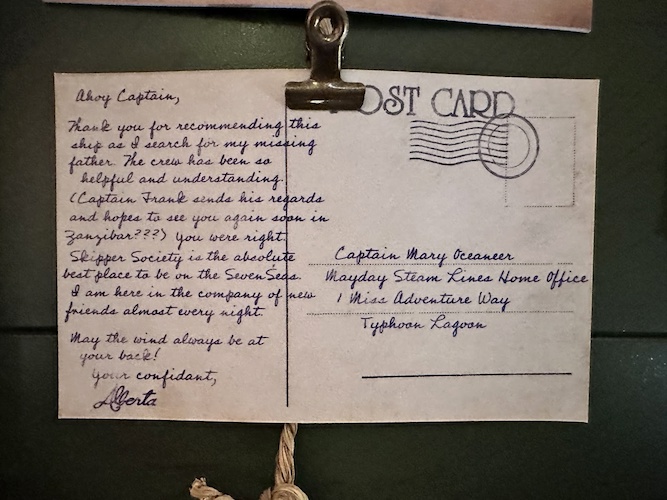 POST CARD
Ahoy Captain,
Thank you for recommending this
ship as I search for my missing
father. The crew has been so
helpful and understanding.
(Captain Frank sends his regards
and hopes to see you again soon in
Zanzibar???) You were right.
Skipper Society is the absolute
best place to be on the Seven Seas.
I am here in the company of new
friends almost every night.
May the wind always be at
your back!
Your confidant,
Alberta
Captain Mary Oceaneer
Mayday Steam Lines Home Office
1 Miss Adventure Way
Typhoon Lagoon